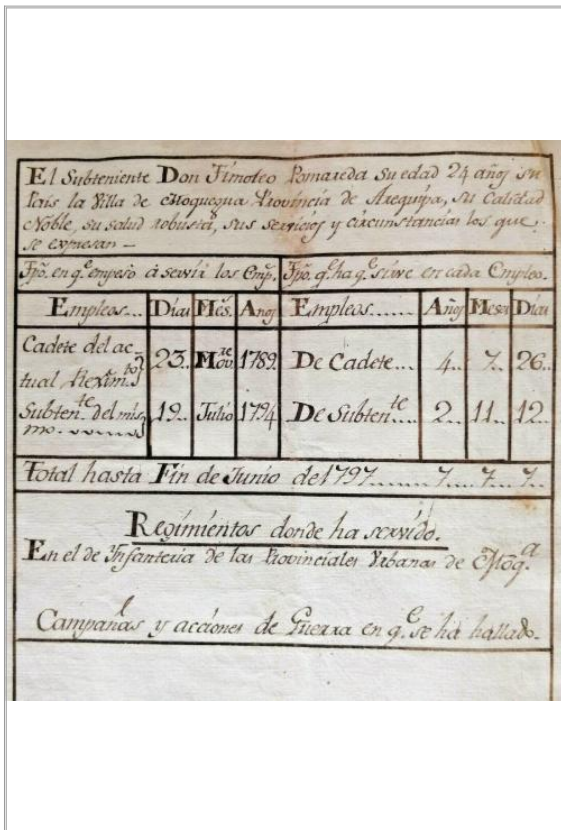 El Subteniente Don Timoteo Pomareda su edad 24 años su
Pais la Villa de Moquegua Provincia de Arequipa, su Calidad
Noble, su salud robusta, sus servicios y circunstancias los que
se expresan –
Tpo. en q.e empesó á servir los Emp.s Tpo. q.e ha q.e sirve en cada Empleo.
Empleos... Dias Més. Años Empleos...... Años Meses Dias
Cadete del ac-
tual Rexim.to 23.. Nov.re 1789. De Cadete... 4.. 7.. 26..
Subten.te del mis-
mo. 19.. Julio 1794 De Subten.te.... 2.. 11.. 12..
Total hasta Fin de Junio de 1797....... 7... 7.. 7..
Regimientos donde ha servido.
En el de Infanteria de las Provinciales Urbanas de Moq.a
Campañas y acciones de Guerra en q.e se ha hallado.